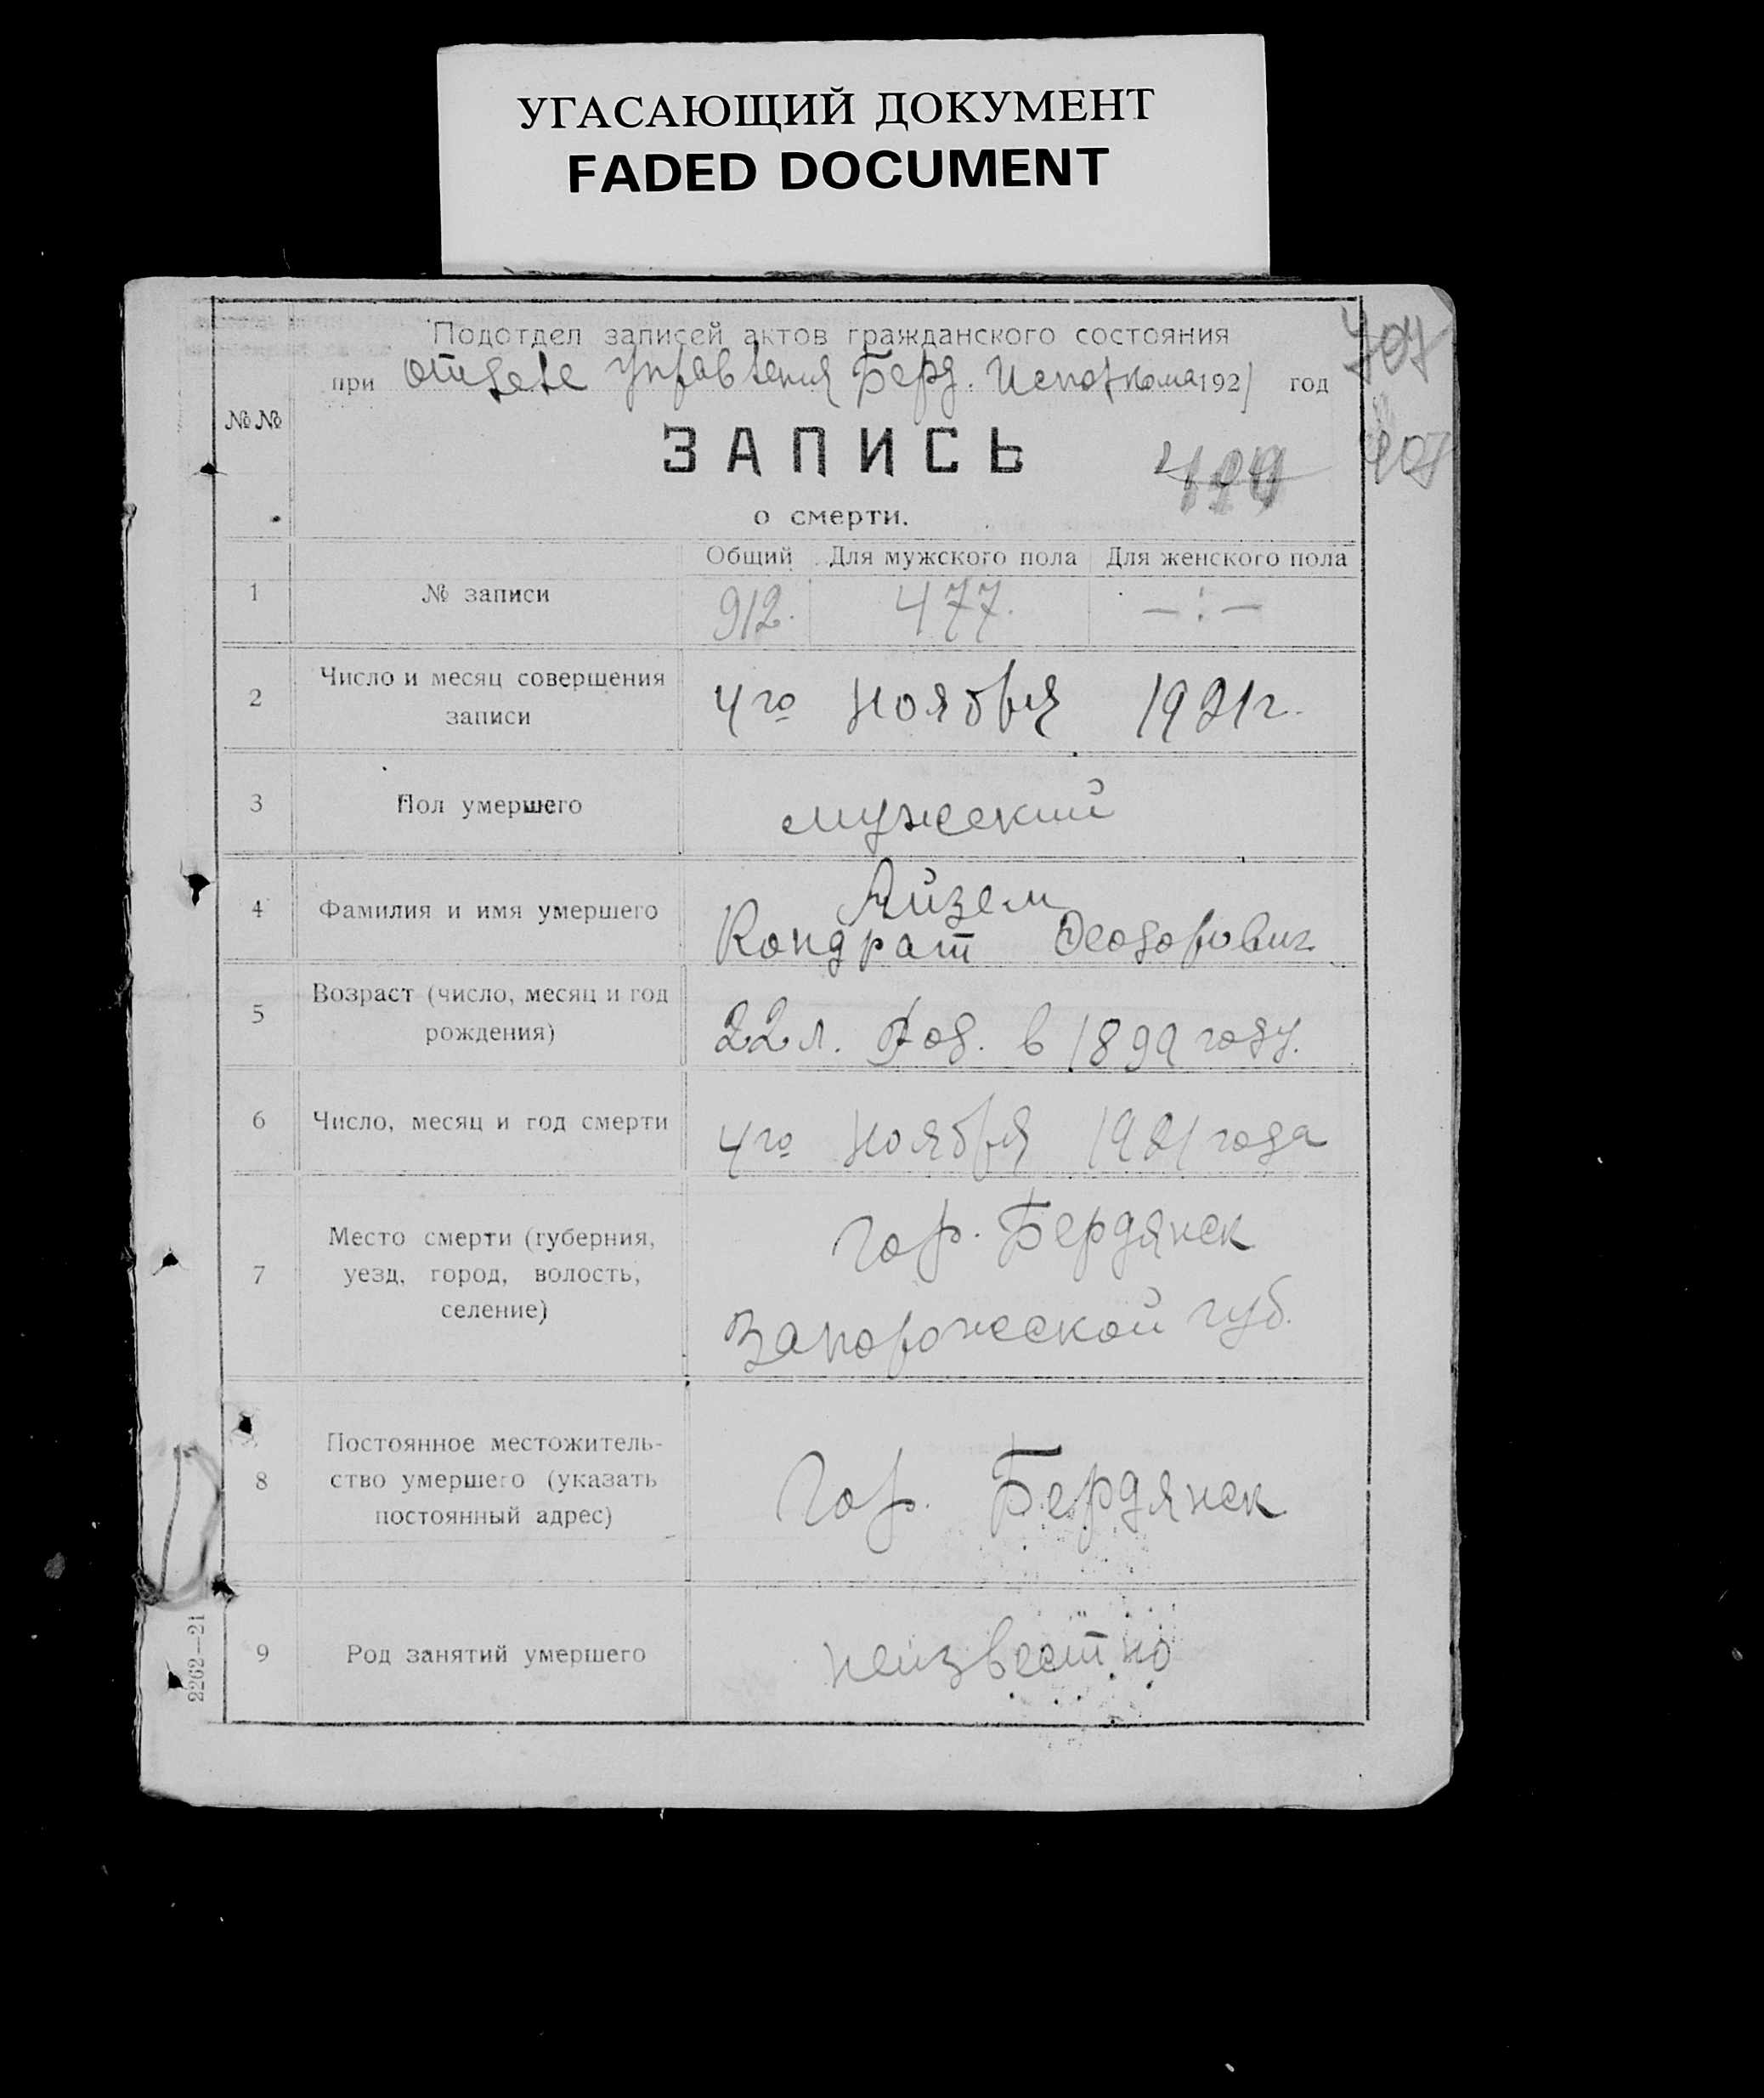 УГАСАЮЩИЙ ДОКУМЕНТ
FADED DOCUMENT
Подотдел записей актов гражданского состояния
при отделе управления Берд. Исполкома 1921 год
№№
ЗАПИСЬ
о смерти.
Общий Для мужского пола Для женского пола
1 № записи 912. 477. —:—
2 Число и месяц совершения
записи
4го ноября 1921г.
3 Пол умершего мужеский
4 Фамилия и имя умершего
Айзем
Кондрат Феодорович
5 Возраст (число, месяц и год
рождения)
22 л. Род. в 1899 году.
6 Число, месяц и год смерти 4го ноября 1921 года
7 Место смерти (губерния,
уезд, город, волость,
селение)
гор. Бердянск
Запорожеской губ.
8 Постоянное местожитель-
ство умершего (указать
постоянный адрес)
Гор. Бердянск
9 Род занятий умершего неизвестно
2262—21